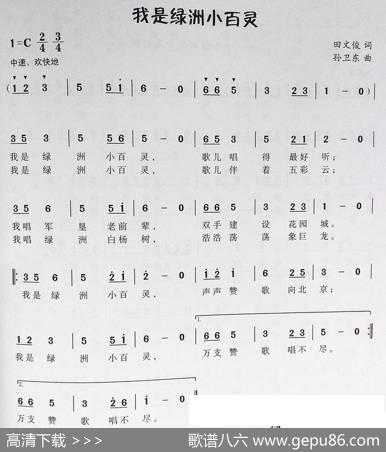 我是绿洲小百灵
1=C 2/4 3/4
田文俊 词
中速、欢快地
孙卫东 曲
(1 2 3 | 5 5 1 | 6 - 0 | 6 6 5 | 3 2 3 | 1 - 0) |
3 5 3 | 5 5 6 | 5 - 0 | 6 6 5 | 3 2 3 | 2 - 0 |
我是 绿 洲 小百 灵， 歌儿 唱 得 最好 听；
我是 绿 洲 小百 灵， 歌儿 伴 着 五彩 云；
3 5 6 | 5 5 i | 6 - 0 | 2 2 3 | 5 2 3 | 1 - 0 |
我唱 军 垦 老前 辈， 双手 建 设 花园 城。
我唱 绿 洲 白杨 树， 浩浩 荡 荡 象巨 龙。
我是 绿 洲 小百 灵， 声声 赞 歌 向北 京；
1 2 3 | 5 5 1 | 6 - 0 | 6 6 5 | 3 2 3 | 5 - 0 :|
我是 绿 洲 小百 灵， 万支 赞 歌 唱不 尽。
2.
6 6 5 | 5 3 | 2 6 | i - 0 |
万支 赞 歌 唱不 尽。
高清下载 >>>
歌谱八六 www.gepu86.com